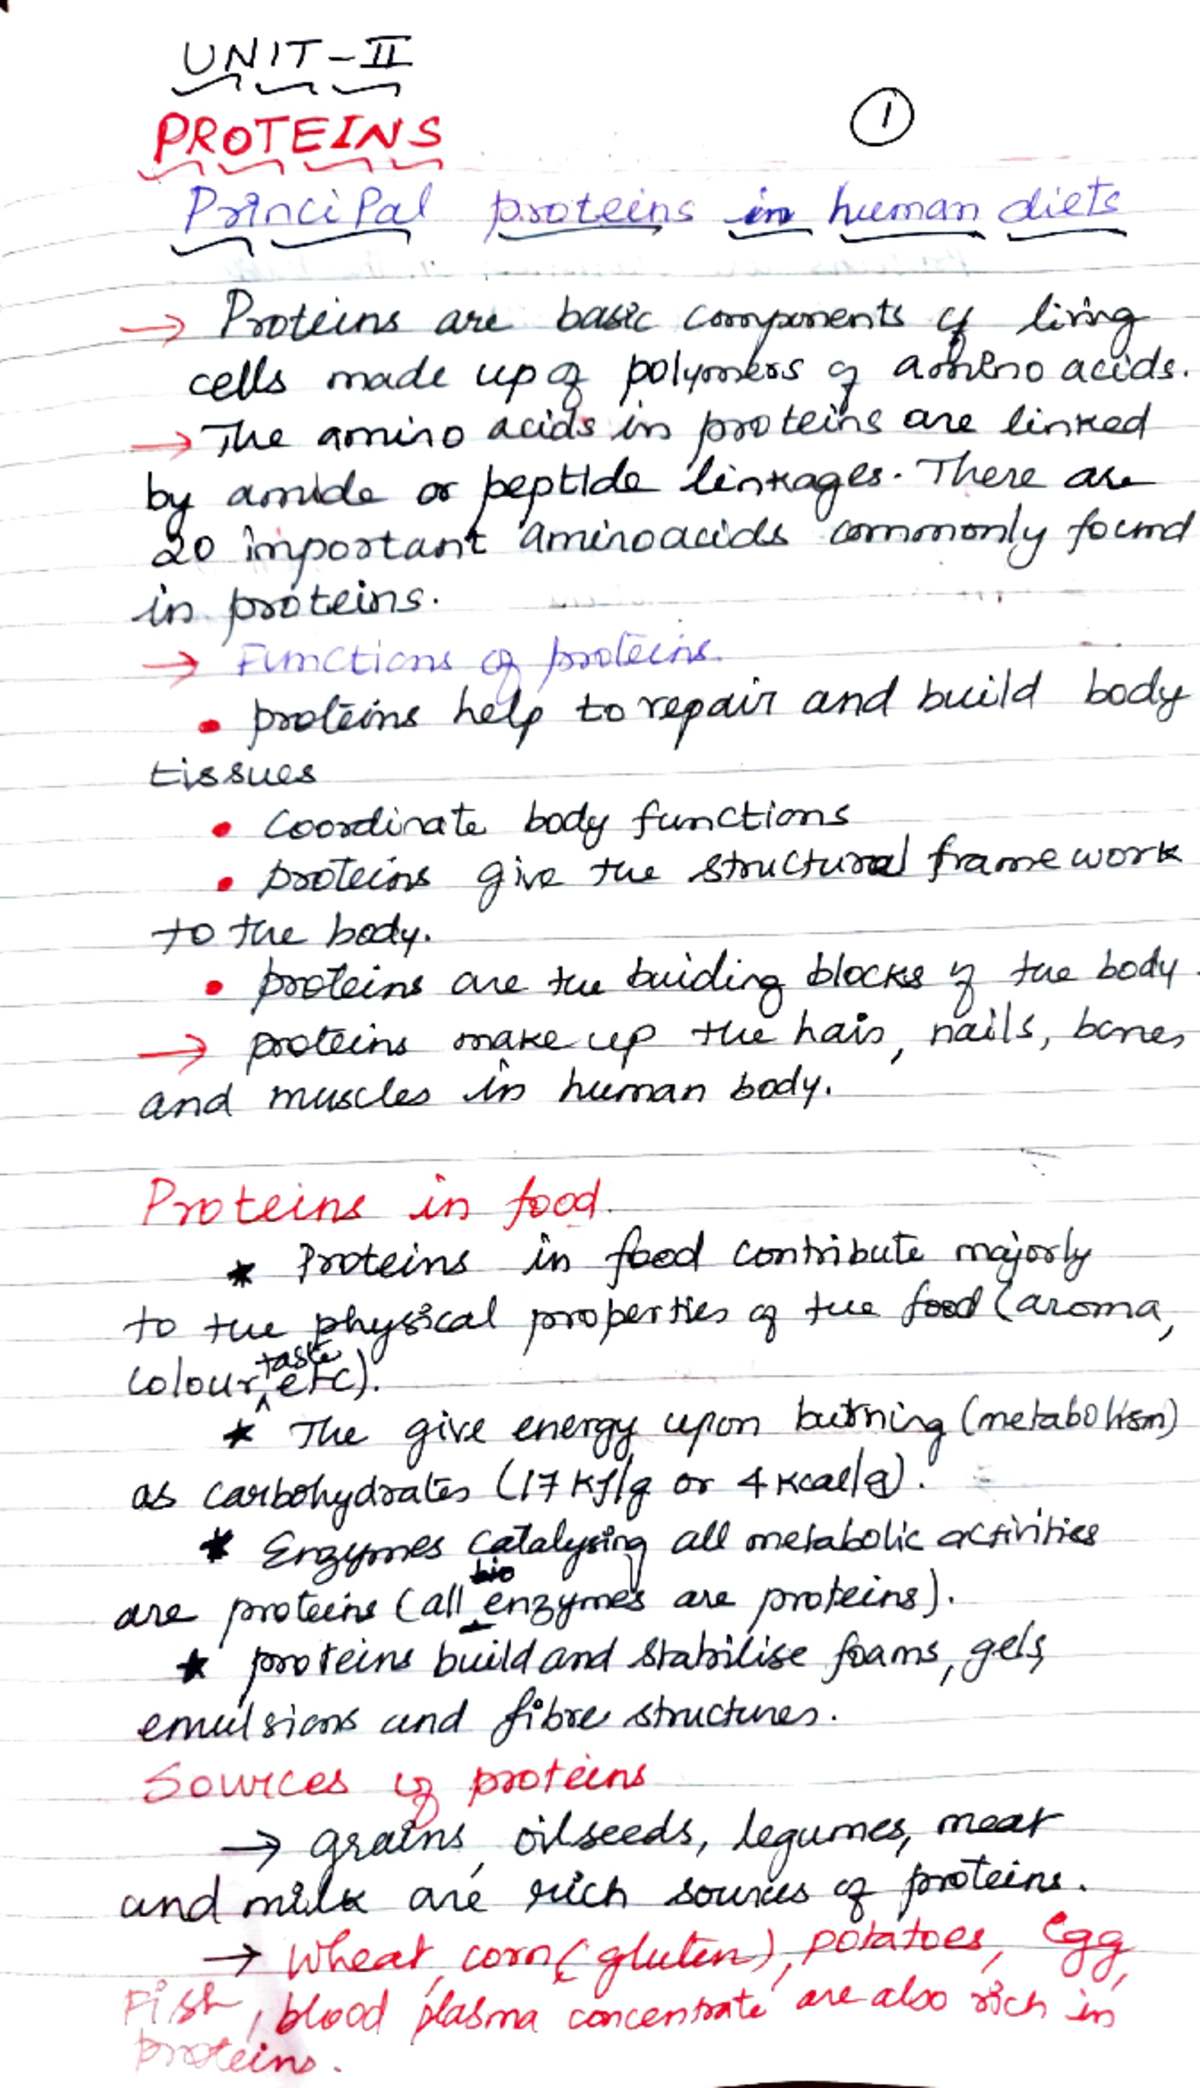 UNIT-II
PROTEINS
1
Principal proteins in human diets
→ Proteins are basic components of living
cells made up of polymers of amino acids.
→ The amino acids in proteins are linked
by amide or peptide linkages. There are
20 important aminoacids commonly found
in proteins.
→ Functions of proteins.
• proteins help to repair and build body
tissues
• Coordinate body functions
• proteins give the structural frame work
to the body.
• proteins are the buiding blocks of the body.
→ proteins make up the hair, nails, bones,
and muscles in human body.
Proteins in food.
* Proteins in food contribute majorly
to the physical properties of the food (aroma,
colour, taste etc).
* The give energy upon burning (metabolism)
as carbohydrates (17 KJ/g or 4 Kcal/g).
* Enzymes catalysing all metabolic activities
are proteins (all bio enzymes are proteins).
* proteins build and stabilise foams, gels,
emulsions and fibre structures.
Sources of proteins
→ grains, oilseeds, legumes, meat
and milk are rich sources of proteins.
→ Wheat, corn (gluten), potatoes, Egg,
Fish, blood plasma concentrate are also rich in
proteins.